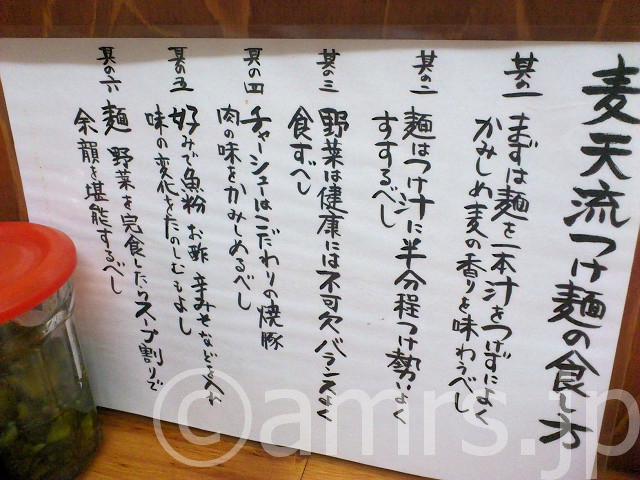 麦天流つけ麺の食し方
其の一 まずは麺を一本汁をつけずによく
かみしめ麦の香りを味わうべし
其の二 麺はつけ汁に半分程つけ勢いよく
すするべし
其の三 野菜は健康には不可欠バランスよく
食すべし
其の四 チャーシューはこだわりの焼豚
肉の味をかみしめるべし
其の五 好みで魚粉 お酢 辛みそなどを入れ
味の変化をたのしむもよし
其の六 麺 野菜を完食したらスープ割りで
余韻を堪能するべし
©amrs.jp